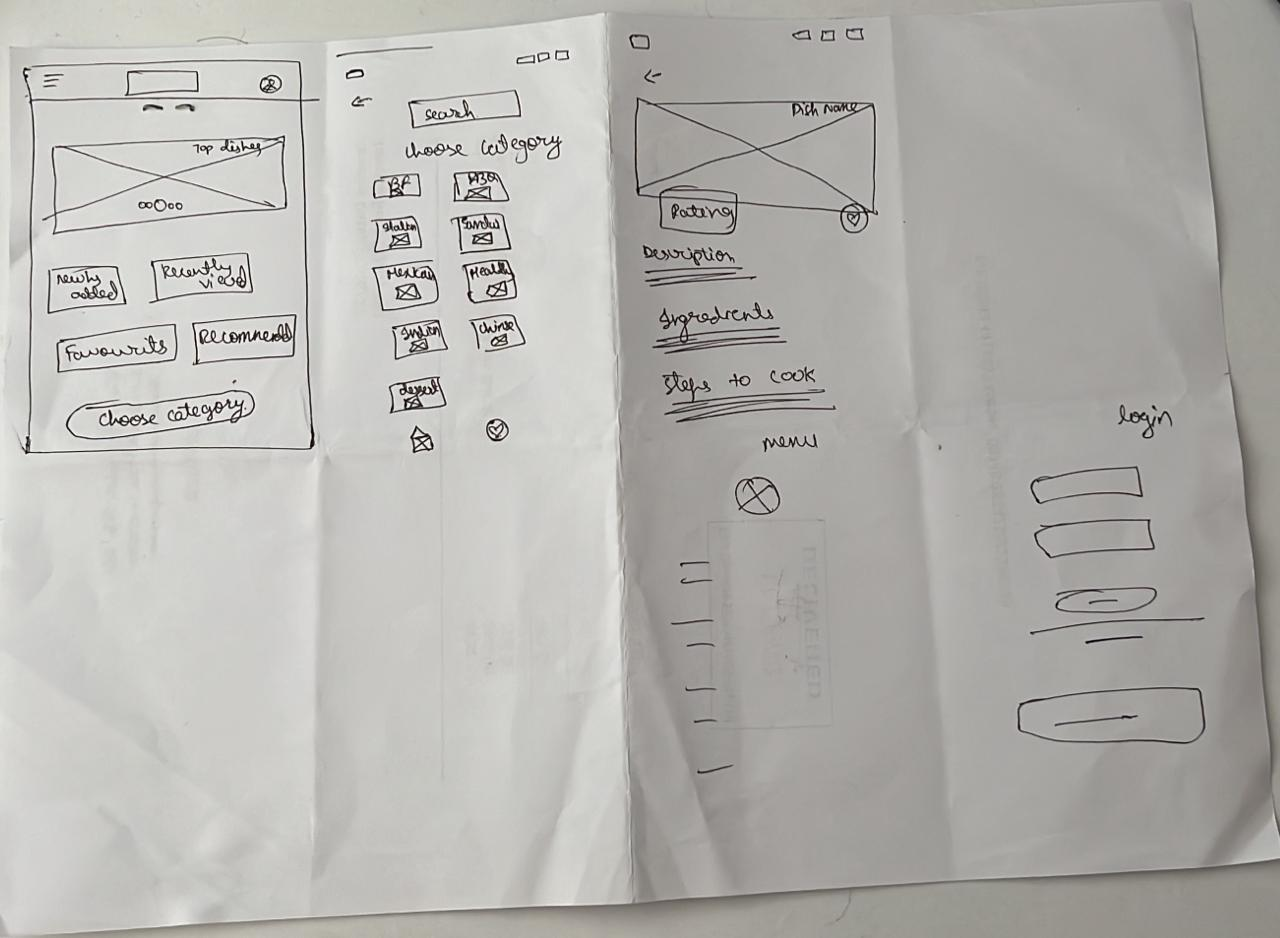 Top dishes
Newly
added
Recently
viewd
Favourits
Recommend
choose category
search
choose category
BF
BBQ
Mexican
Health
Indian
chinse
dessert
Dish Name
Rating
Description
Ingredients
Steps to cook
menu
login